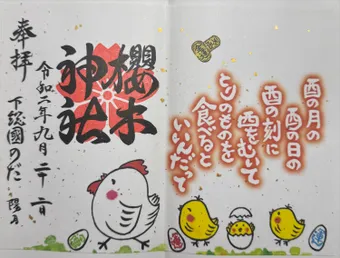 酉の月の
酉の日の
酉の刻に
西をむいて
とりのものを
食べると
いいんだって
櫻木
神社
奉拝
令和六年九月二十二日
下総國のだ